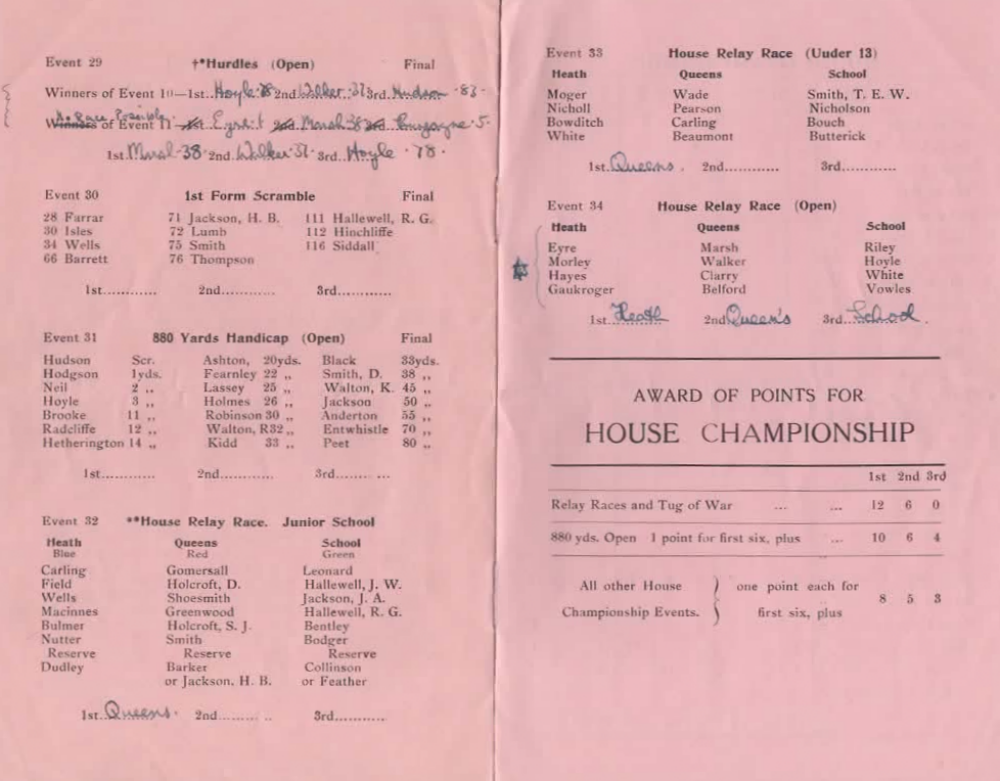 Event 29 †*Hurdles (Open) Final
Winners of Event 10—1st..Hoyle 78 2nd Walker 37 3rd Hudson ·83·
Winners of Event 11 1st Eyre 2nd Marsh 38 3rd 5·
1st Marsh·38· 2nd. Walker·37· 3rd.. Hoyle ·78·
Event 30 1st Form Scramble Final
28 Farrar 71 Jackson, H. B. 111 Hallewell, R. G.
30 Isles 72 Lumb 112 Hinchliffe
34 Wells 75 Smith 116 Siddall
66 Barrett 76 Thompson
1st............ 2nd............ 3rd............
Event 31 880 Yards Handicap (Open) Final
Hudson Scr. Ashton, 20yds. Black 33yds.
Hodgson 1yds. Fearnley 22 ,, Smith, D. 38 ,,
Neil 2 ,, Lassey 25 ,, Walton, K. 45 ,,
Hoyle 3 ,, Holmes 26 ,, Jackson 50 ,,
Brooke 11 ,, Robinson 30 ,, Anderton 55 ,,
Radcliffe 12 ,, Walton, R32 ,, Entwhistle 70 ,,
Hetherington 14 ,, Kidd 33 ,, Peet 80 ,,
1st............ 2nd............ 3rd........ ...
Event 32 **House Relay Race. Junior School
Heath Queens School
Blue Red Green
Carling Gomersall Leonard
Field Holcroft, D. Hallewell, J. W.
Wells Shoesmith Jackson, J. A.
Macinnes Greenwood Hallewell, R. G.
Bulmer Holcroft, S. J. Bentley
Nutter Smith Bodger
Reserve Reserve Reserve
Dudley Barker Collinson
or Jackson, H. B. or Feather
1st..Queens. 2nd......... .. 3rd............
Event 33 House Relay Race (Uuder 13)
Heath Queens School
Moger Wade Smith, T. E. W.
Nicholl Pearson Nicholson
Bowditch Carling Bouch
White Beaumont Butterick
1st..Queens. 2nd............ 3rd............
Event 34 House Relay Race (Open)
Heath Queens School
Eyre Marsh Riley
Morley Walker Hoyle
Hayes Clarry White
Gaukroger Belford Vowles
1st..Heath 2nd Queen's 3rd..School.
AWARD OF POINTS FOR
HOUSE CHAMPIONSHIP
1st 2nd 3rd
Relay Races and Tug of War ... ... 12 6 0
880 yds. Open 1 point for first six, plus ... 10 6 4
All other House Championship Events. } one point each for first six, plus 8 5 3